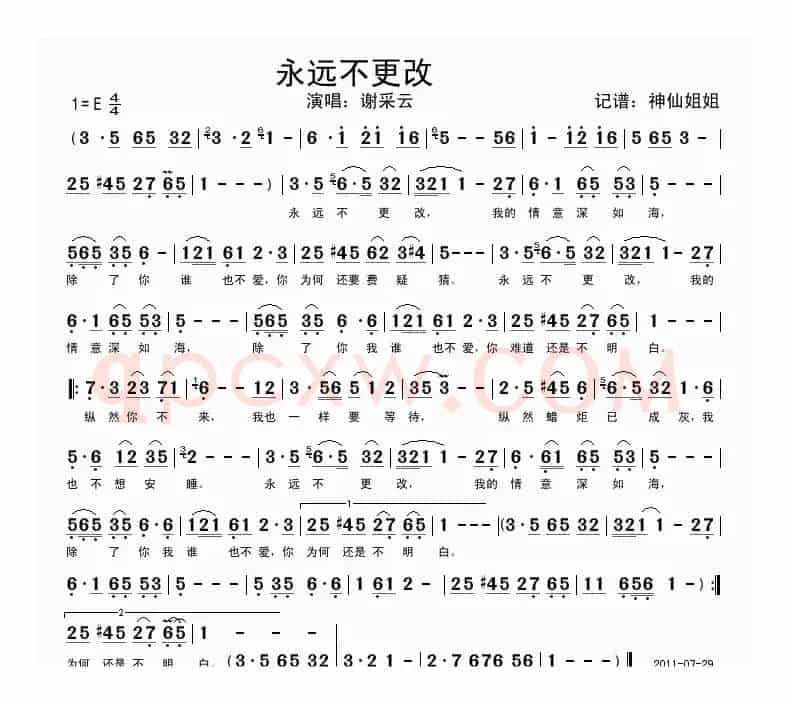 永远不更改
1=E 4/4 演唱：谢采云 记谱：神仙姐姐
(3·5 65 32 | 2 3·3 2 | 6 1 - | 6·1 21 16 | 6 5 - - 56 | 1 - 12 16 | 5 65 3 -
25 #45 27 65 | 1 - - ) | 3·5 5 6·5 32 | 321 1 - 27 | 6·1 65 53 | 5 - - -
永远不更改， 我的情意深如海，
565 35 6 - | 121 61 2·3 | 25 #45 62 3#4 | 5 - - - | 3·5 5 6·5 32 | 321 1 - 27
除了你谁也不爱，你为何还要费疑猜。永远不更改，我的
6·1 65 53 | 5 - - - | 565 35 6·6 | 121 61 2·3 | 25 #45 27 65 | 1 - - -
情意深如海， 除了你我谁也不爱，你难道还是不明白。
qpcxw.com
‖: 7·3 23 71 | 1 6 - - 12 | 3·56 51 2 | 35 3 - - | 2·5 45 62 | 32 1·6
纵然你不来，我也一样要等待， 纵然蜡炬已成灰，我
5·6 12 35 | 3 2 - - - | 3·5 5 6·5 32 | 321 1 - 27 | 6·61 65 53 | 5 - - -
也不想安睡。永远不更改，我的情意深如海，
1
565 35 6·6 | 121 61 2·3 | 25 #45 27 65 | 1 - - - | (3·5 65 32 | 321 1 - 27
除了你我谁也不爱，你为何还是不明白。
6·1 65 53 | 5 - - - | 5 35 6·6 | 1 61 2 - | 25 #45 27 65 | 11 656 1 - ) :‖
2
25 #45 27 65 | 1 - - -
为何还是不明白。(3·5 65 32 | 3·2 1 - | 2·7 676 56 | 1 - - -)‖ 2011-07-29